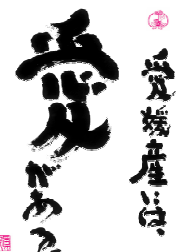 愛媛産には、
愛がある